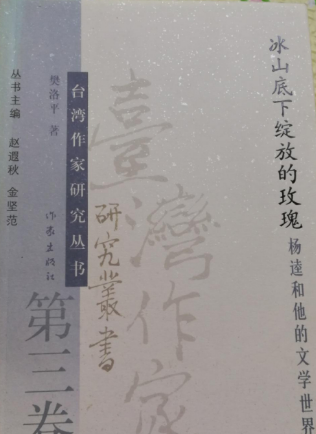 冰山底下绽放的玫瑰
杨逵和他的文学世界
臺灣作家
研究叢書
台湾作家研究丛书
樊洛平 著
作家出版社
第三卷
丛书主编 赵遐秋 金坚范